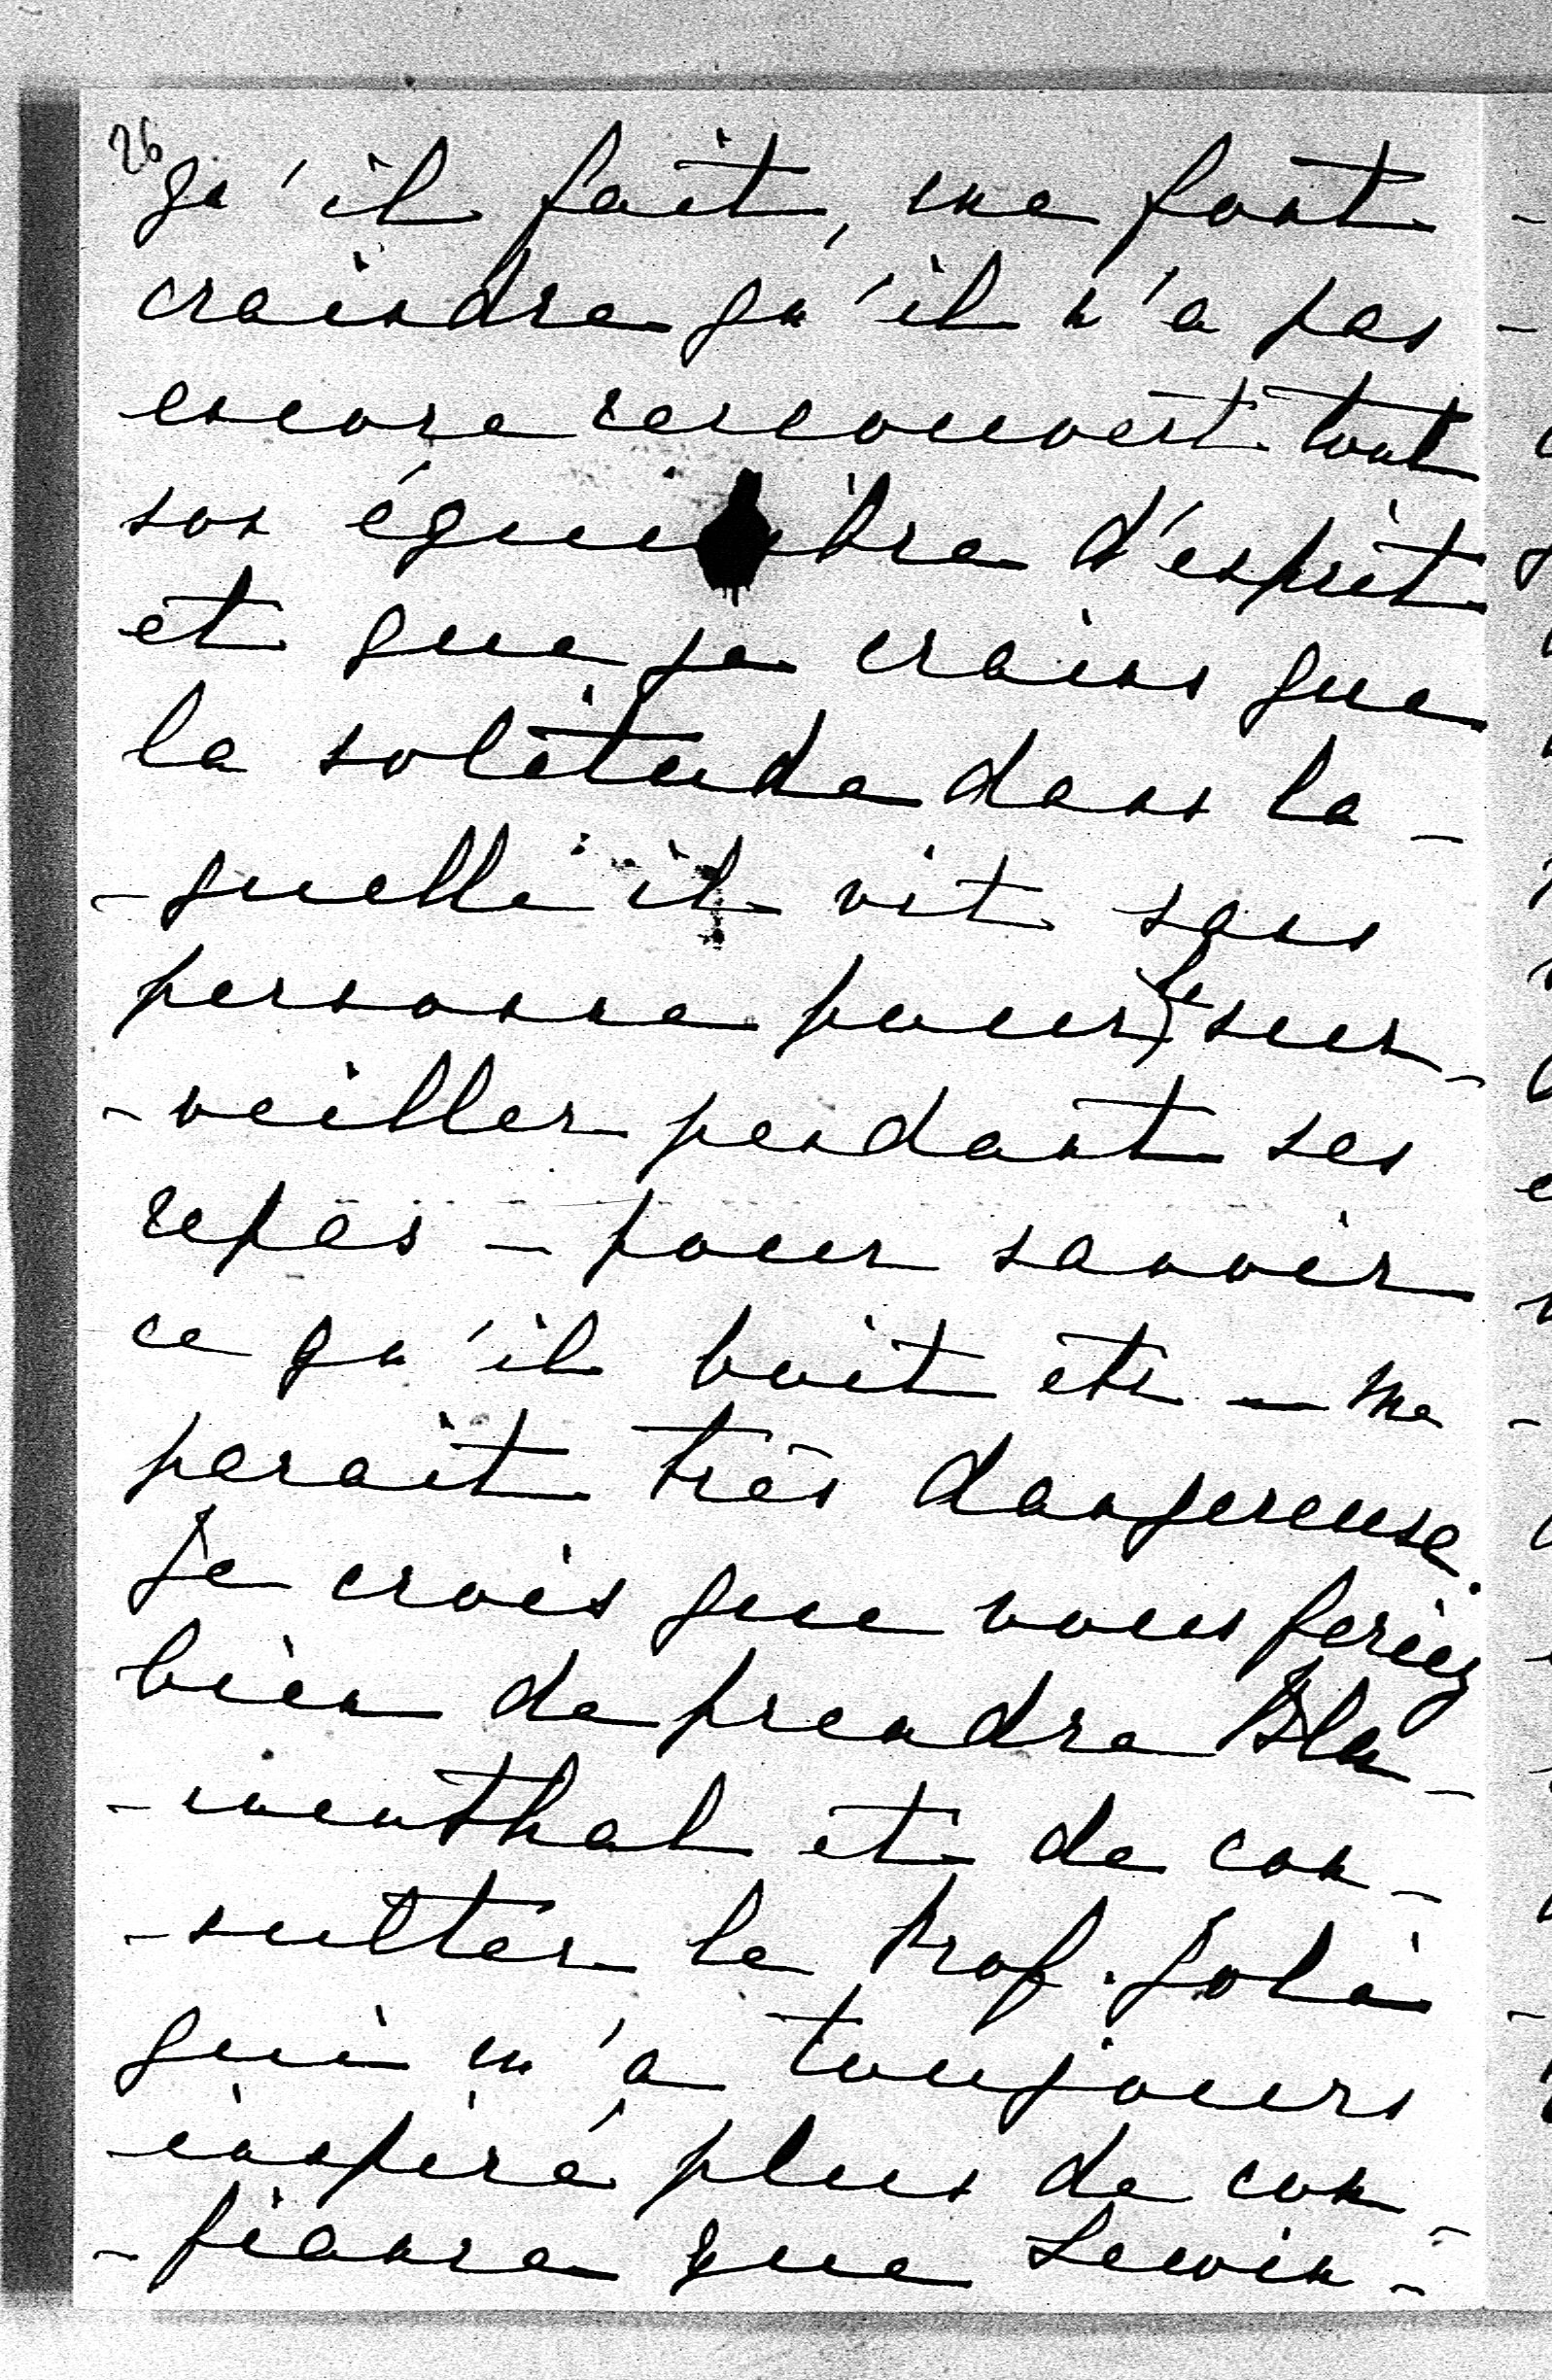 26
qu'il fait, me font
craindre qu'il n'a pas
encore recouvert tout
son équilibre d'esprit
et que je crains que
la solitude dans la-
-quelle il vit sans
personne pour le sur-
-veiller pendant ses
repas - pour savoir
ce qu'il boit etc — me
parait très dangereuse.
Je crois que vous feriez
bien de prendre Blu-
-menthal et de con-
-sulter le Prof.
qui m'a toujours
inspiré plus de con-
-fiance que Lewin-